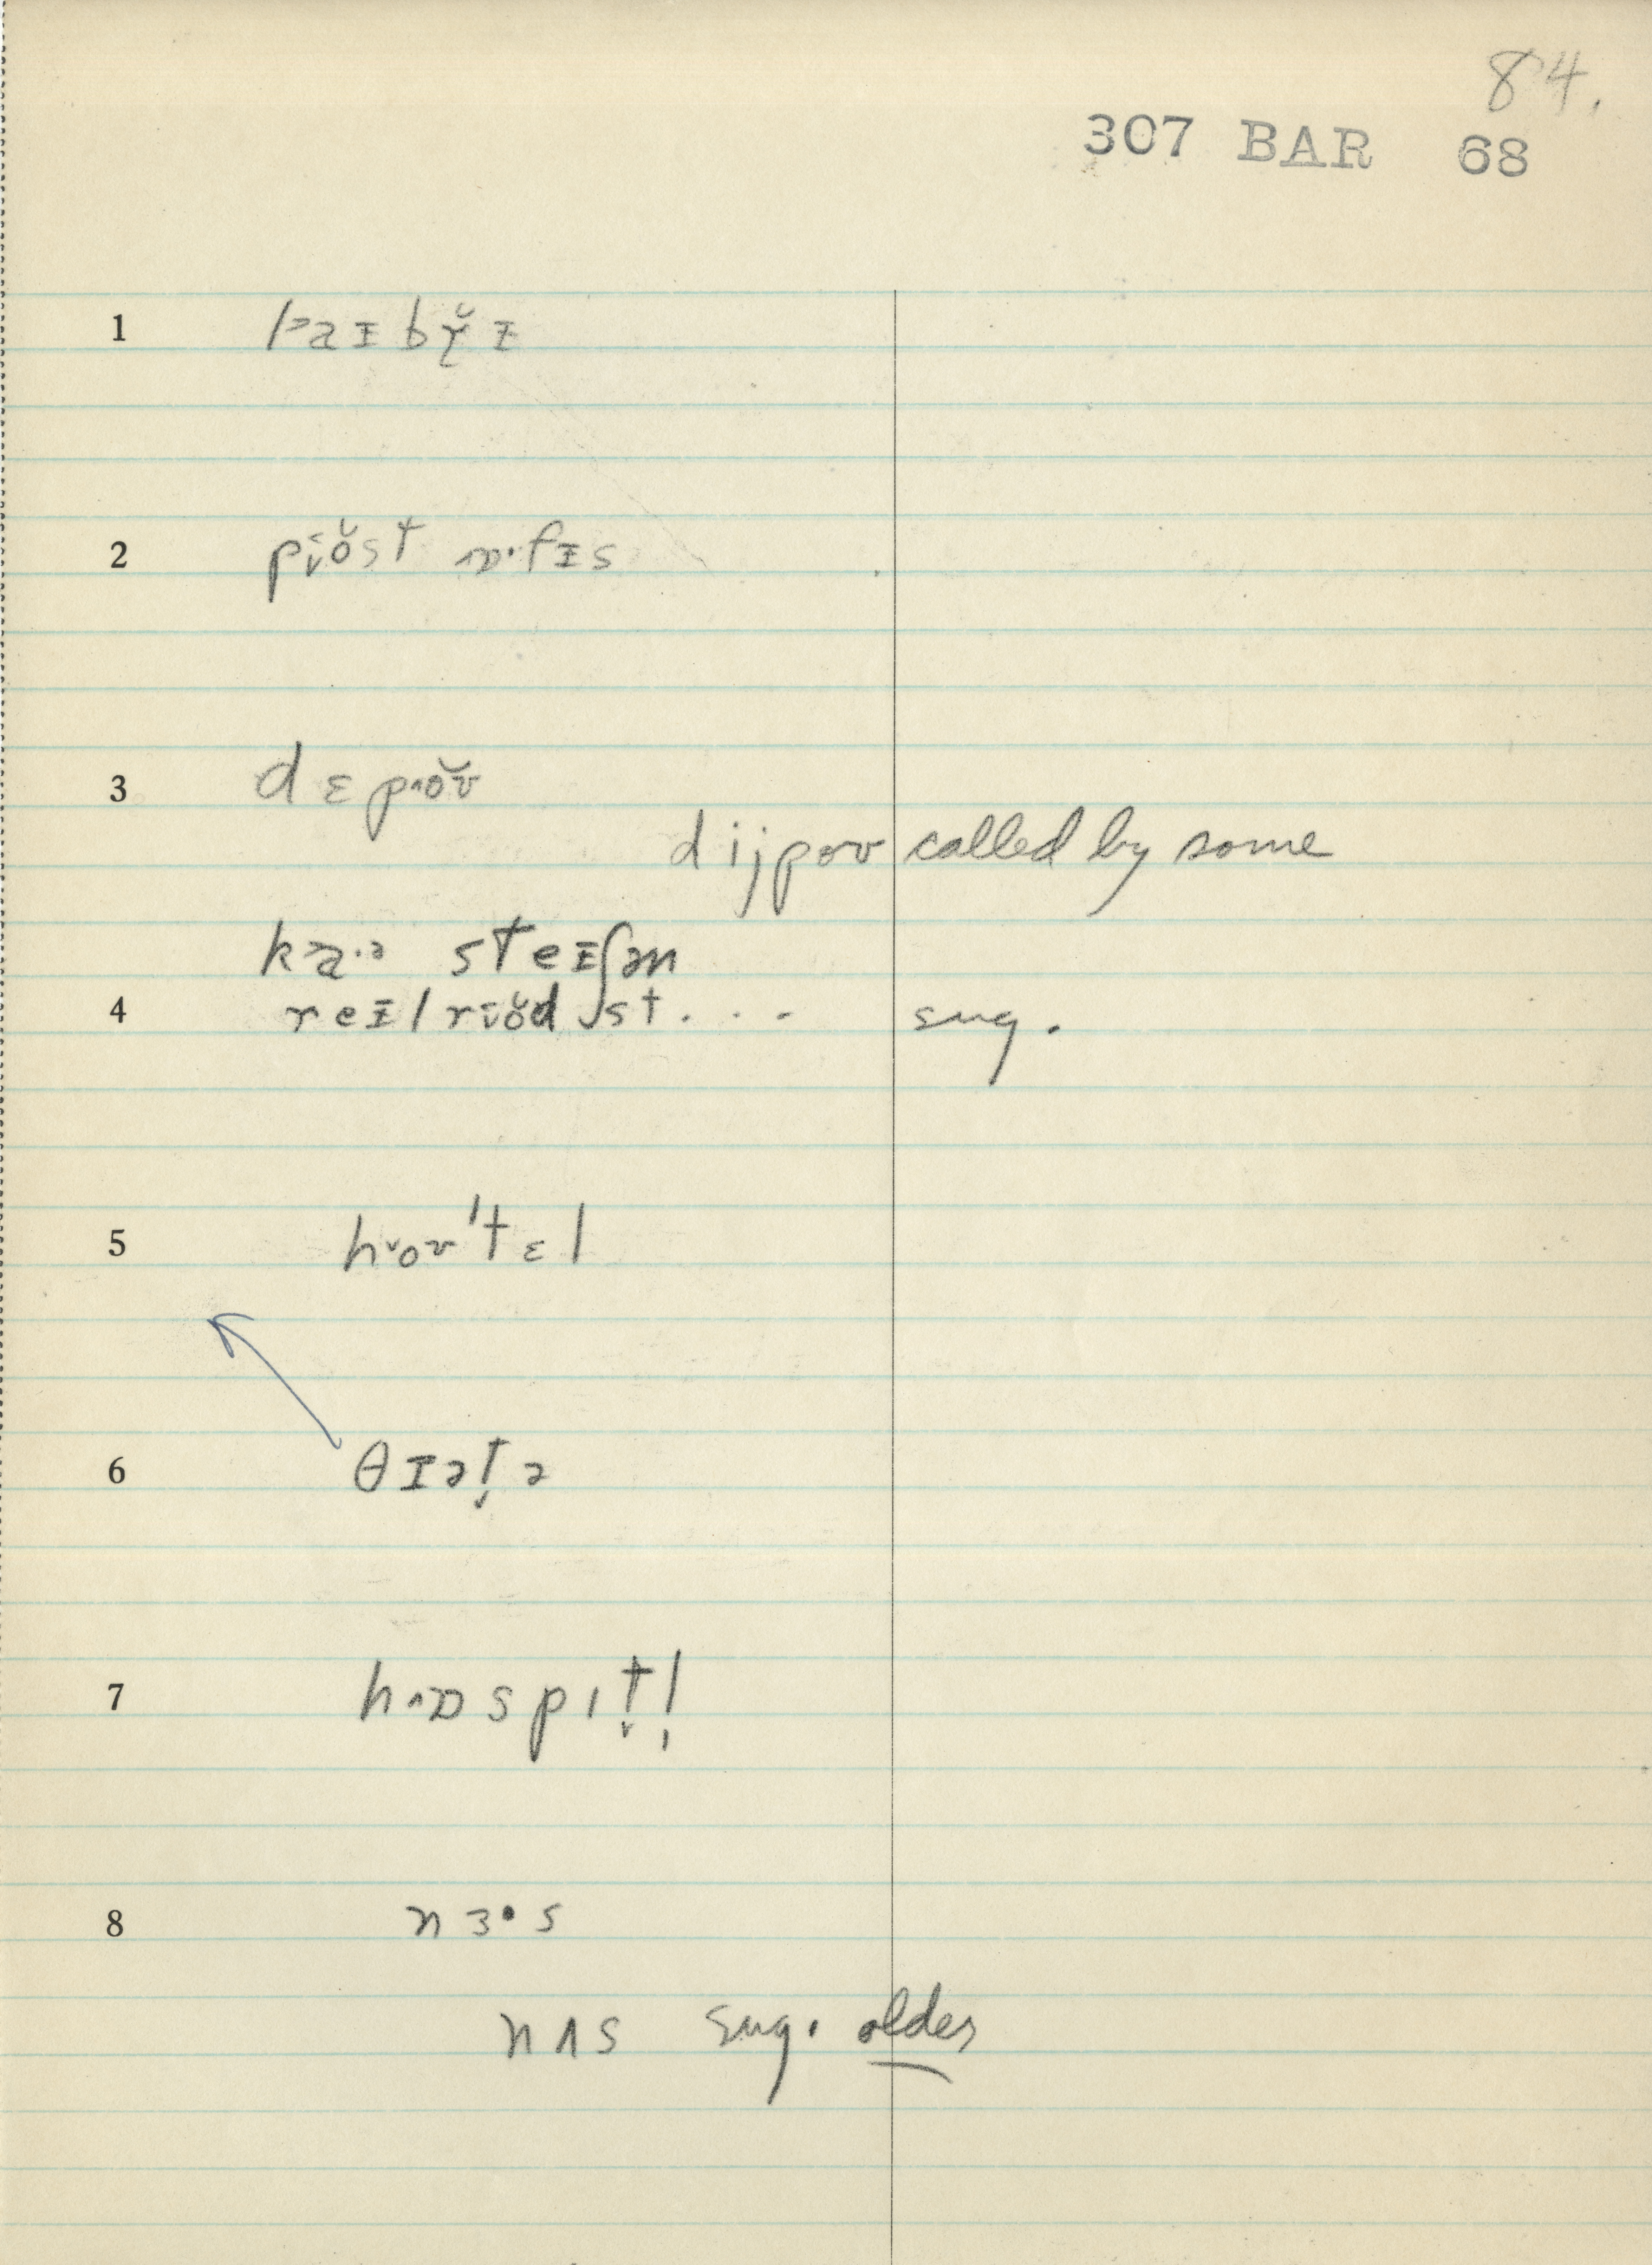 84.
307 BAR 68
1 laɪbrɪ
2 post ɒ·fɪs
3 dɛpoʊ
dijpoʊ called by some
ka·ə steɪʃən
4 reɪlroəd st... sug.
5 hoʊ'tɛl
6 θɪət̬ə
7 hɒspɪt̬l̩
8 nɜ·s
nʌs sug. older